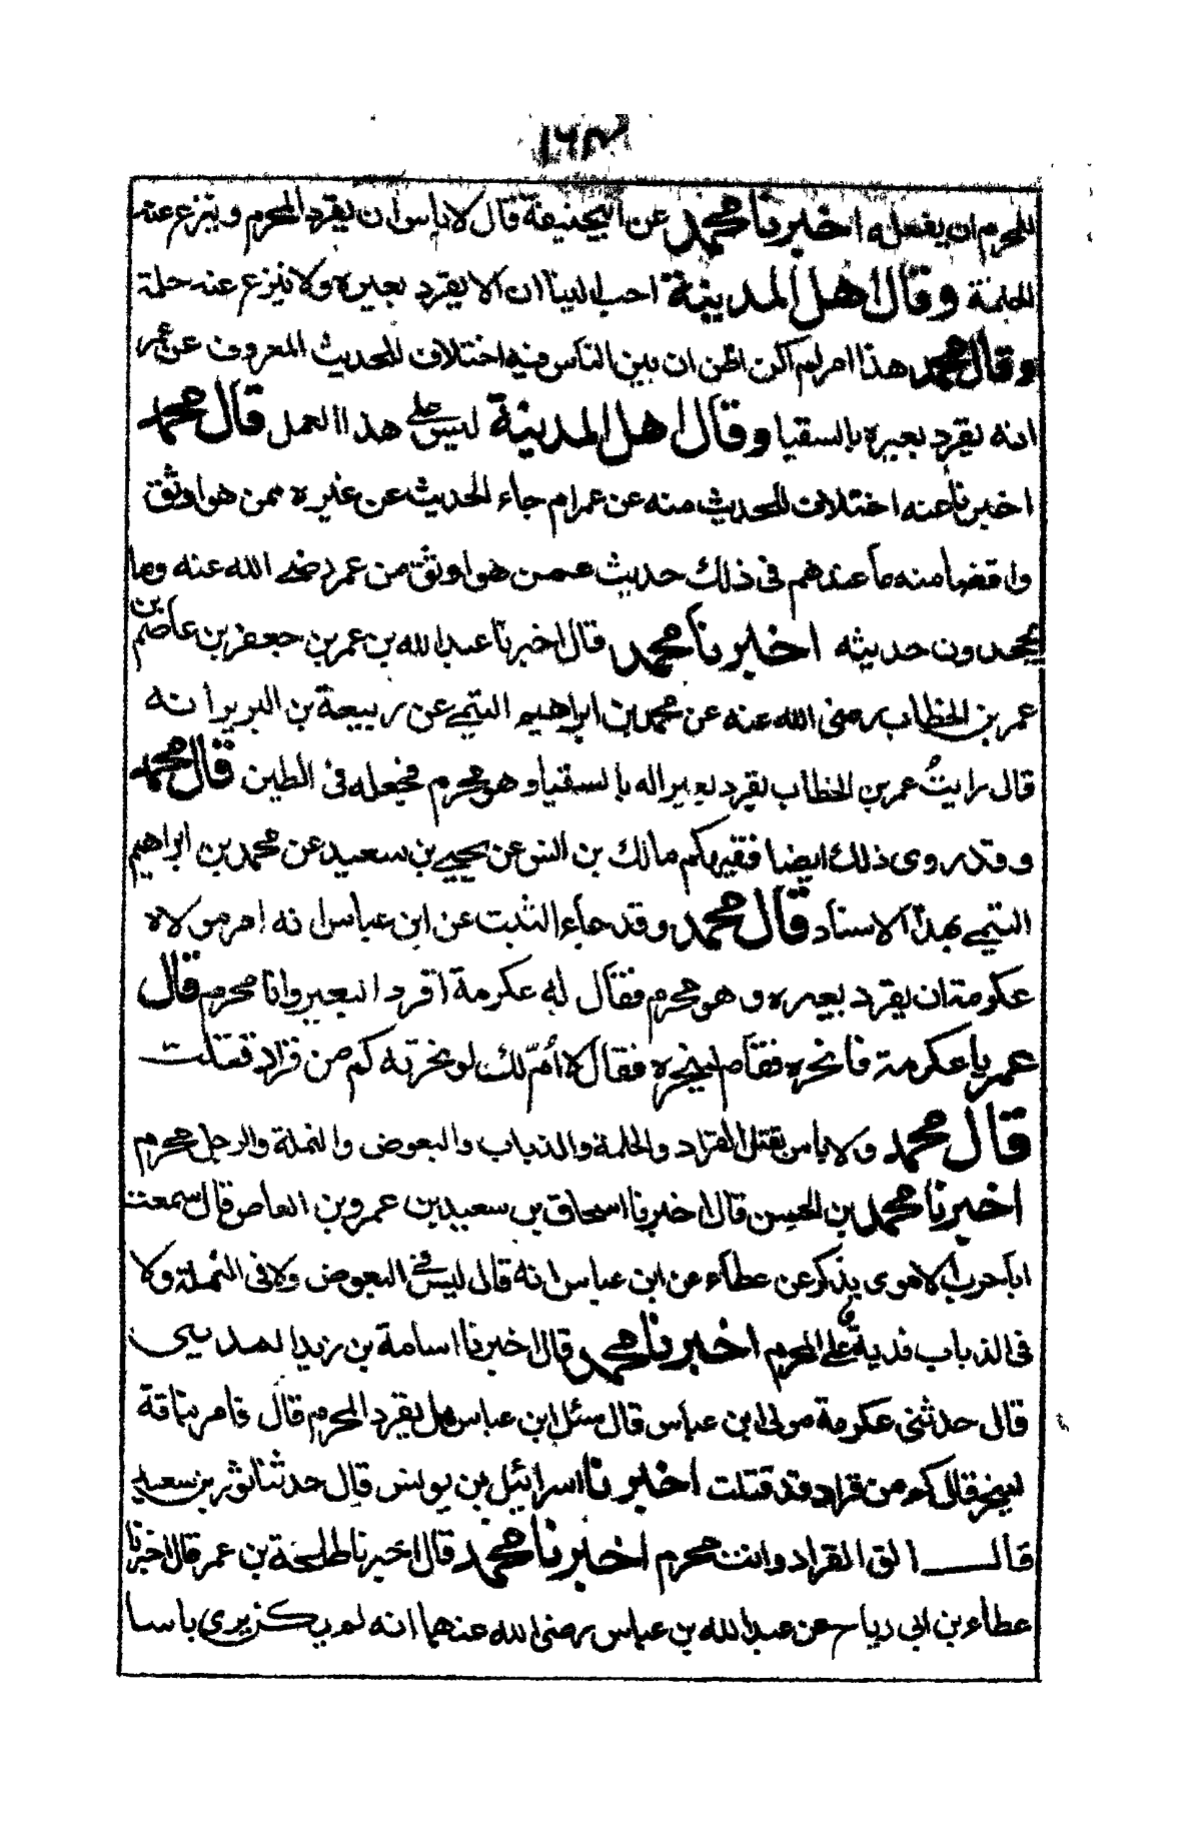 للمحرم ان يفعله اخبرنا محمد عن ابيحنيفة قال لا باس ان يقرد المحرم وينزع عنه
الحلمة وقال اهل المدينة احب الينا ان لا يقرد بعيره ولا ينزع عنه حلمة
وقال محمد هذا امر لم اكن اظن ان بين الناس فيه اختلاف للحديث المعروف عن عمر
انه يقرد بعيره بالسقيا وقال اهل المدينة ليس على هذا العمل قال محمد
اخبرنا عنه اختلاف للحديث منه عن عمر ام جاء الحديث عن غيره ممن هو اوثق
منه ما عندهم في ذلك حديث عمن هو اوثق من عمر رضي الله عنه وما
يجحدون حديثه اخبرنا محمد قال اخبرنا عبد الله بن عمر بن حفص بن عاصم بن
عمر بن الخطاب رضى الله عنه عن محمد بن ابراهيم التيمي عن ربيعة بن الهرير أنه
قال رايت عمر بن الخطاب يقرد بعيرا له بالسقيا وهو محرم فيجعله في الطين قال محمد
وقد روى ذلك ايضا فقيهكم مالك بن انس عن يحيي بن سعيد عن محمد بن ابراهيم
التيمي بهذا الاسناد قال محمد وقد جاء الثبت عن ابن عباس انه امر مولاه
عكرمة ان يقرد بعيره وهو محرم فقال له عكرمة اقرد البعير وانا محرم قال
يا عكرمة فانحره فقام لينحره فقال لا أم لك لو نحرته كم من قراد قتلت
قال محمد ولا باس بقتل القراد والحلمة والذباب والبعوض والنملة والرجل محرم
اخبرنا محمد بن الحسن قال اخبرنا اسحاق بن سعيد بن عمرو بن العاص قال سمعت
ابا حرب الاموى يذكر عن عطاء عن ابن عباس انه قال ليس في البعوض ولا في النملة ولا
في الذباب فدية على المحرم اخبرنا محمد قال اخبرنا اسامة بن زيد المديني
قال حدثني عكرمة مولى ابن عباس قال سئل ابن عباس هل يقرد المحرم قال فامر بناقة
قال كم من قراد قد قتلت اخبرنا اسرائيل بن يونس قال حدثنا ثور بن سعيد
قال الق القراد وانت محرم اخبرنا محمد قال اخبرنا طلحة بن عمر قال اخبرنا
عطاء بن ابي رباح عن عبد الله بن عباس رضى الله عنهما انه لم يكن يرى باسا